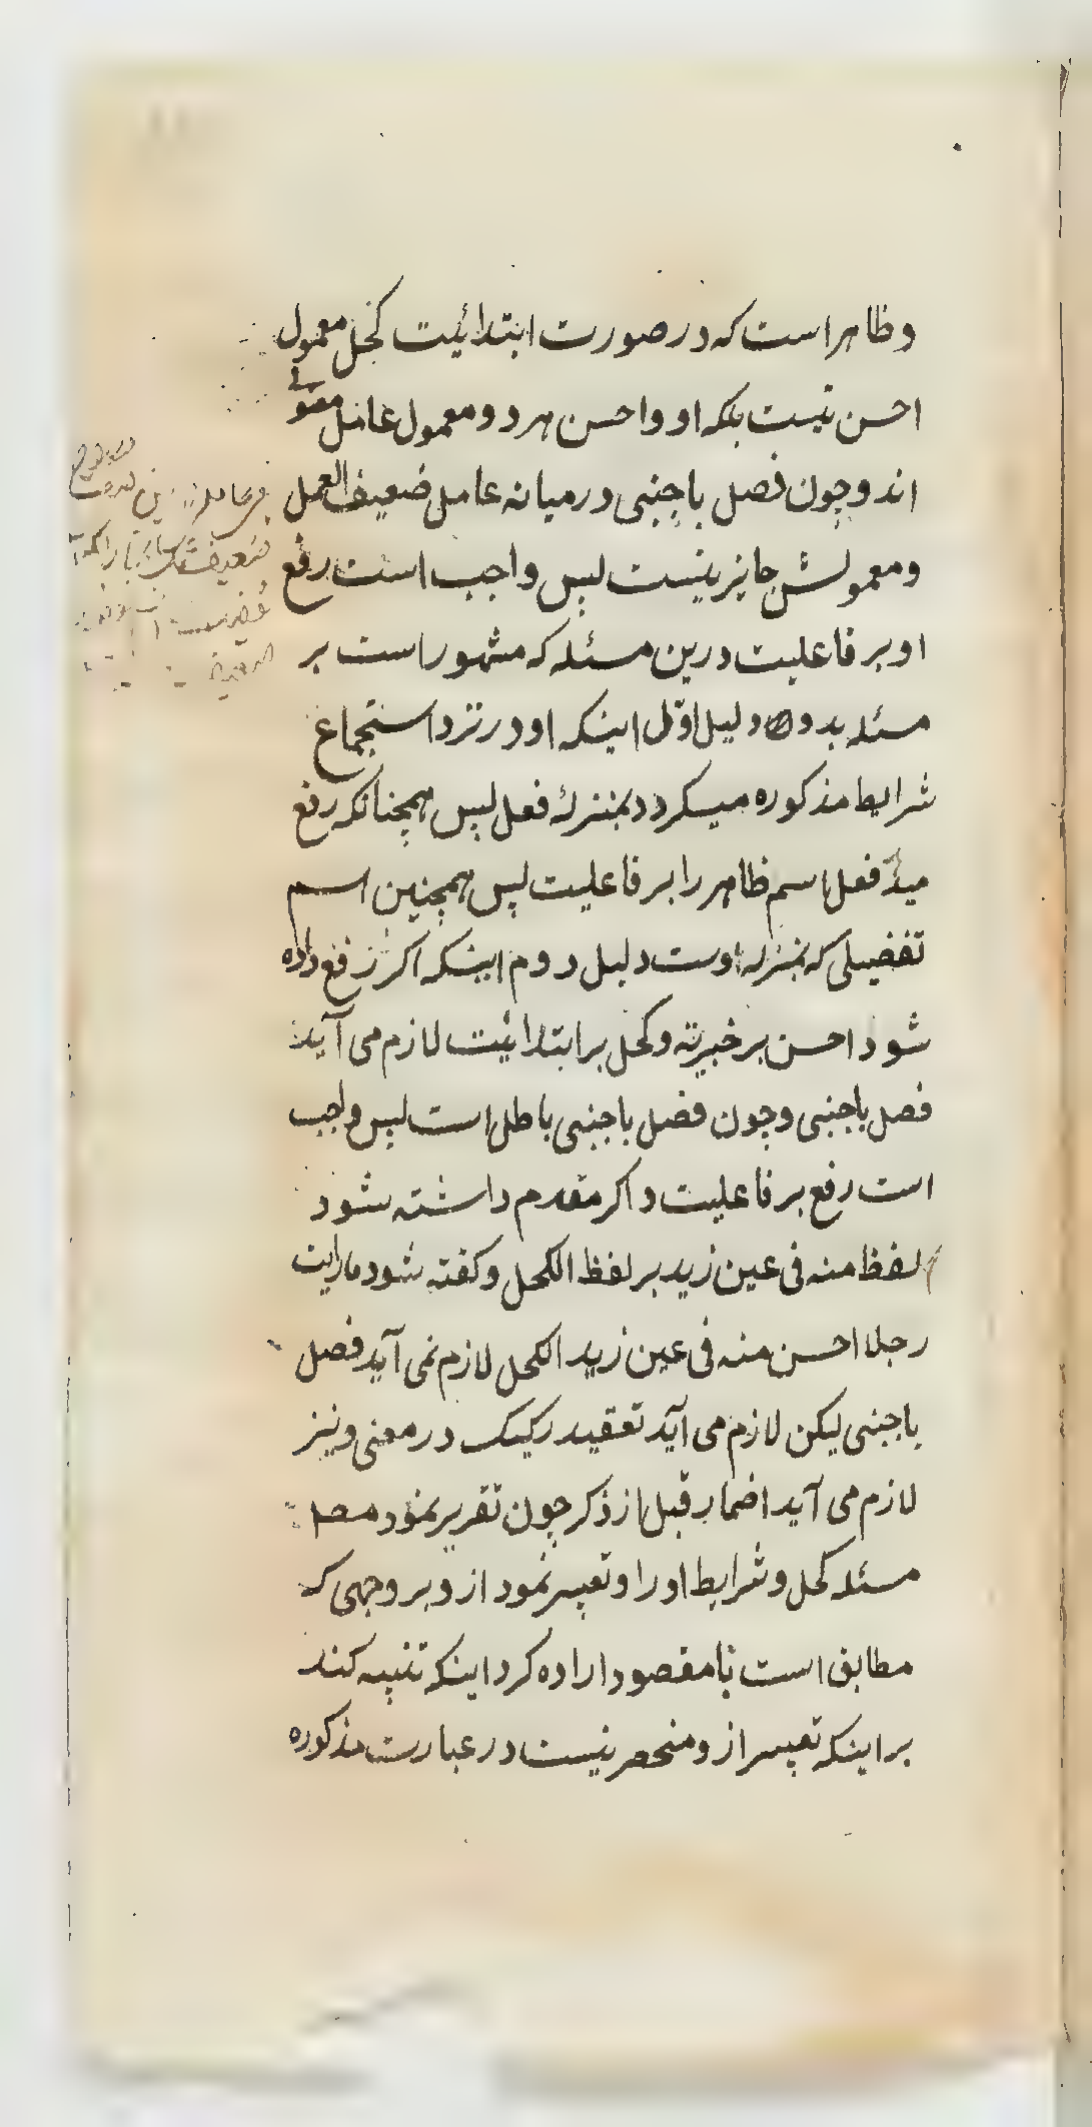 وظاهر است که در صورت ابتدائیت کحل معمول
احسن نیست بلکه او و احسن هر دو معمول عامل معنوی
اند و چون فصل باجنبی در میانه عامل ضعیف العمل
و معمولش جایز نیست پس واجب است رفع
او بر فاعلیت درین مسئله که مشهور است بر
مسئله بدو دلیل اوّل اینکه او در نزد استجماع
شرایط مذکوره میگردد بمنزلهٔ فعل پس همچنانکه رفع
میدهد فعل اسم ظاهر را بر فاعلیت پس همچنین اسم
تفضیلی که بمنزله اوست دلیل دوم اینکه اگر رفع داده
شود احسن بر خبریّة و کحل بر ابتدائیت لازم می آید
فصل باجنبی و چون فصل باجنبی باطل است پس واجب
است رفع بر فاعلیت و اگر مقدم داشته شود
لفظ منه فی عین زید بر لفظ الکحل و گفته شود ما رایت
رجلا احسن منه فی عین زید الکحل لازم نمی آید فصل
باجنبی لیکن لازم می آید تعقید رکیک در معنی و نیز
لازم می آید اضمار قبل از ذکر چون تقریر نمود مصـ
مسئله کحل و شرایط او را و تعبیر نمود ازو بر وجهی که
مطابق است با مقصود اراده کرد اینکه تنبیه کند
بر اینکه تعبیر ازو منحصر نیست در عبارت مذکوره